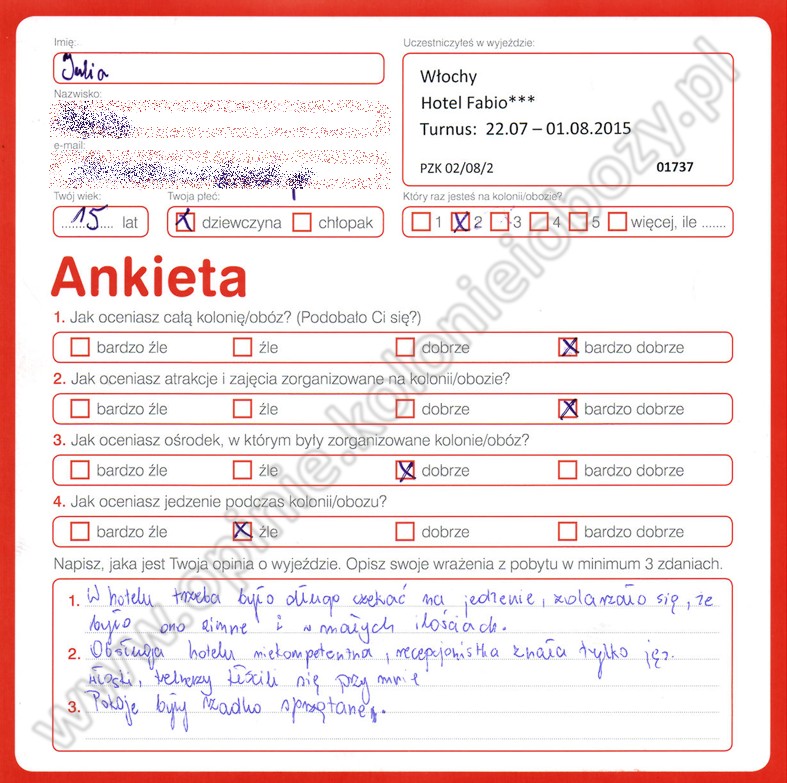 Imię:
Julia
Nazwisko:
e-mail:
Twój wiek:
15 lat
Twoja płeć:
dziewczyna chłopak
Uczestniczyłeś w wyjeździe:
Włochy
Hotel Fabio***
Turnus: 22.07 – 01.08.2015
PZK 02/08/2 01737
Który raz jesteś na kolonii/obozie?
1 2 3 4 5 więcej, ile .......
Ankieta
1. Jak oceniasz całą kolonię/obóz? (Podobało Ci się?)
bardzo źle źle dobrze bardzo dobrze
2. Jak oceniasz atrakcje i zajęcia zorganizowane na kolonii/obozie?
bardzo źle źle dobrze bardzo dobrze
3. Jak oceniasz ośrodek, w którym były zorganizowane kolonie/obóz?
bardzo źle źle dobrze bardzo dobrze
4. Jak oceniasz jedzenie podczas kolonii/obozu?
bardzo źle źle dobrze bardzo dobrze
Napisz, jaka jest Twoja opinia o wyjeździe. Opisz swoje wrażenia z pobytu w minimum 3 zdaniach.
1. W hotelu trzeba było długo czekać na jedzenie, zdarzało się, że
było ono zimne i w małych ilościach.
2. Obsługa hotelu niekompetentna, recepcjonistka znała tylko jęz.
włoski, kelnerzy kłócili się przy mnie
3. Pokoje były rzadko sprzątane.
www.opinie.kolonieiobozy.pl